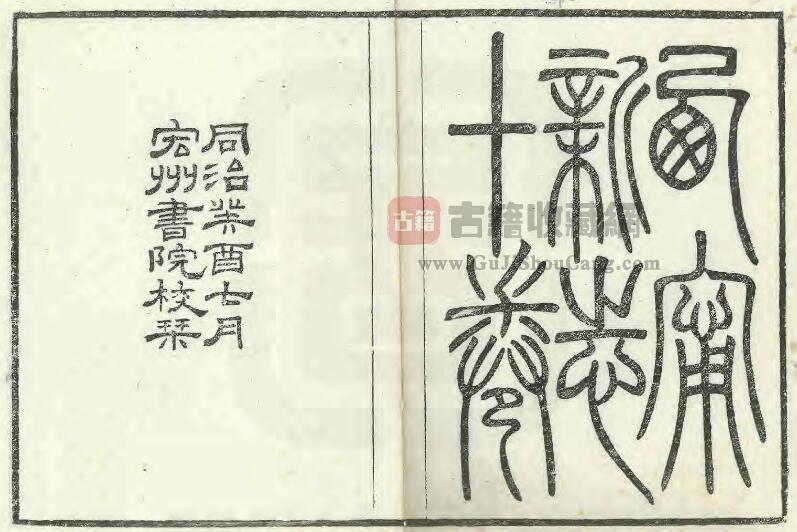 西甯
新志
十卷
同治癸酉七月
宏州書院校栞
古籍 古籍收藏網
www.GuJiShouCang.com